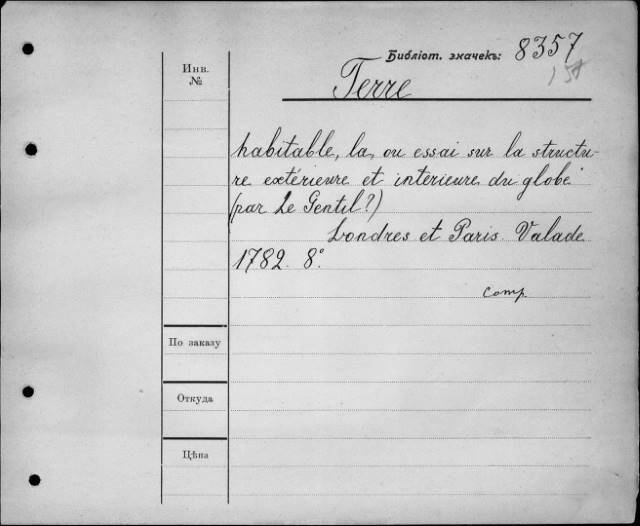 Библіот. значекъ: 8357
Инв. №
Terre
habitable, la, ou essai sur la structu-
re extérieure et interieure du globe
(par Le Gentil?)
Londres et Paris Valade
1782. 8°.
comp.
По заказу
Откуда
Цѣна